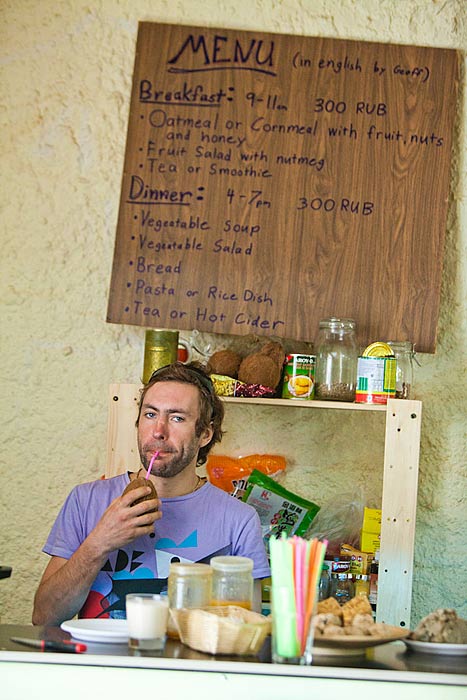 MENU (in english by Geoff)
Breakfast: 9-11am 300 RUB
• Oatmeal or Cornmeal with fruit, nuts
and honey
• Fruit Salad with nutmeg
• Tea or Smoothie
Dinner: 4-7pm 300 RUB
• Vegeatable Soup
• Vegeatable Salad
• Bread
• Pasta or Rice Dish
• Tea or Hot Cider